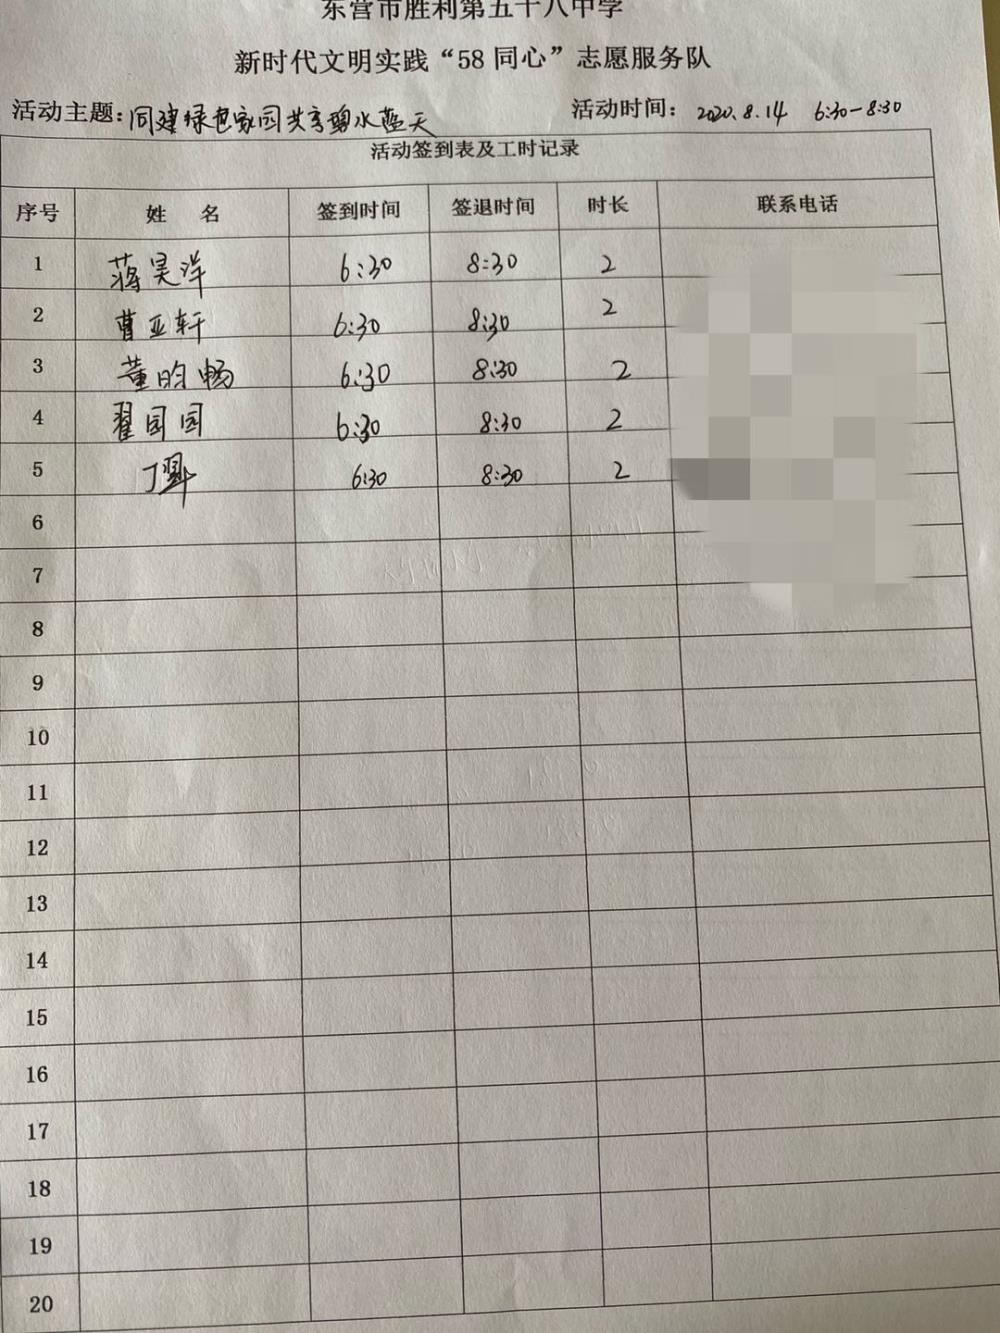 东营市胜利第五十八中学
新时代文明实践“58 同心”志愿服务队
活动主题：同建绿色家园共享碧水蓝天 活动时间： 2020.8.14 6:30-8:30
活动签到表及工时记录
序号 姓 名 签到时间 签退时间 时长 联系电话
1 蒋昊洋 6:30 8:30 2
2 曹亚轩 6:30 8:30 2
3 董昀畅 6:30 8:30 2
4 翟园园 6:30 8:30 2
5 丁 6:30 8:30 2
6
7
8
9
10
11
12
13
14
15
16
17
18
19
20